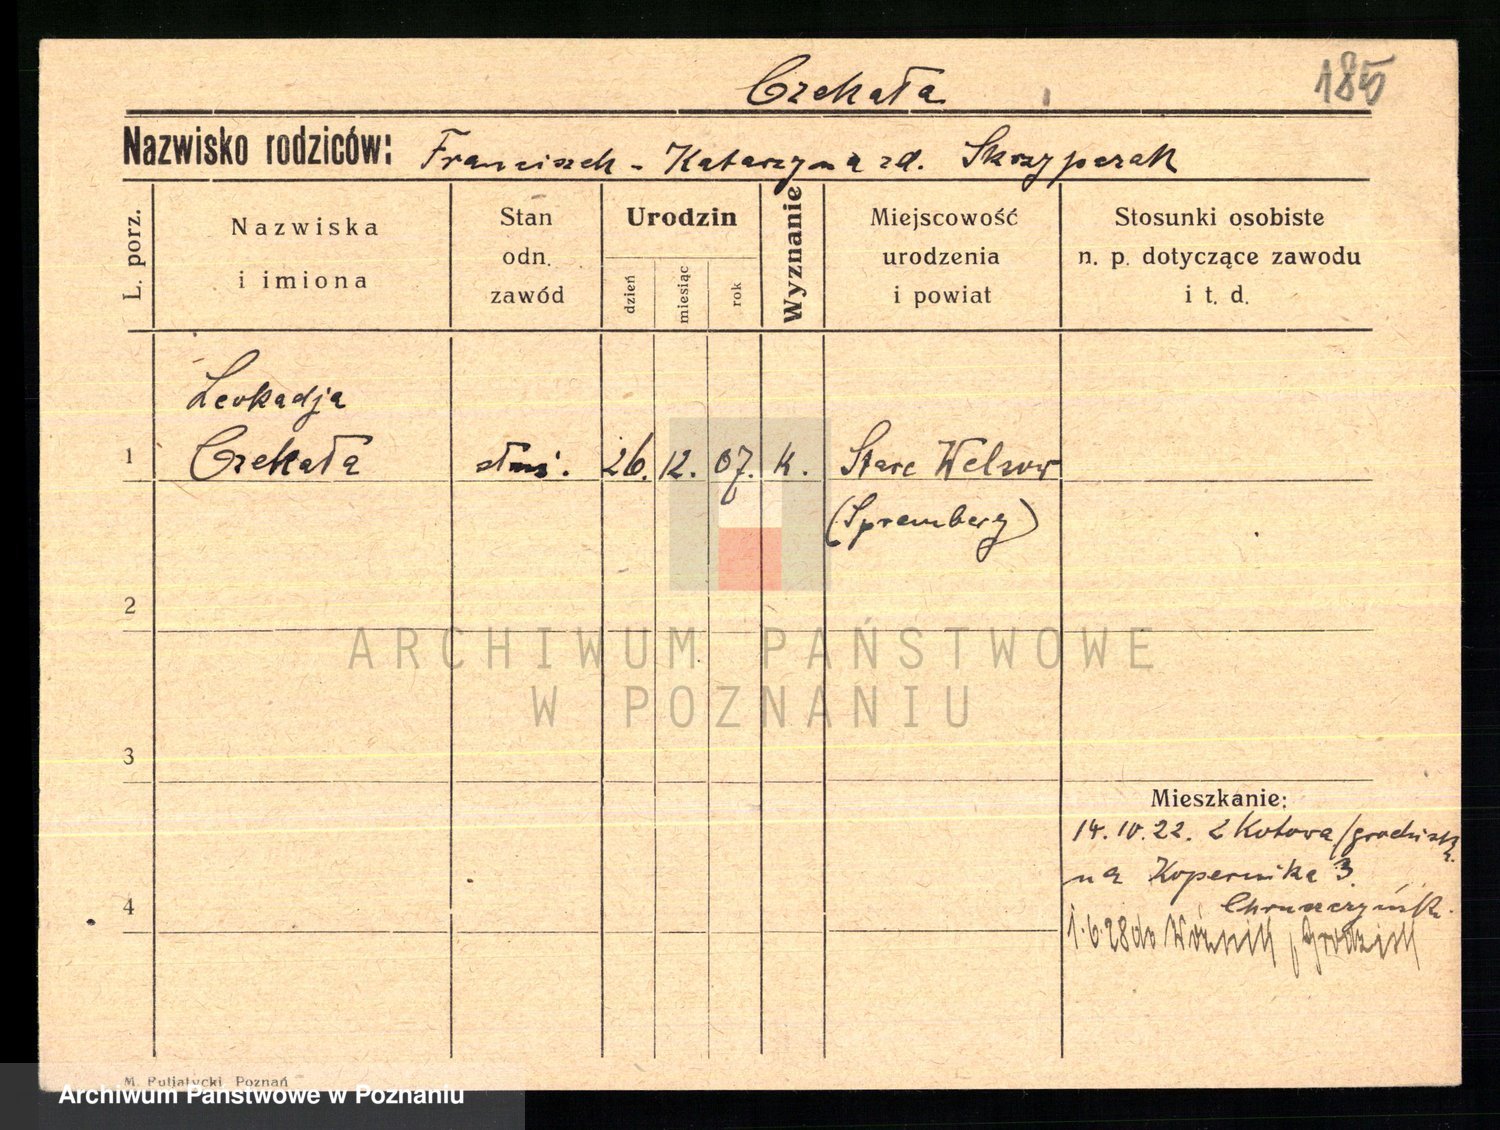 Czekała
185
Nazwisko rodziców: Franciszek - Katarzyna zd. Skrzypczak
L. porz.
Nazwiska
i imiona
Stan
odn.
zawód
Urodzin
dzień
miesiąc
rok
Wyznanie
Miejscowość
urodzenia
i powiat
Stosunki osobiste
n. p. dotyczące zawodu
i t. d.
Leokadja
1 Czekała służ. 26. 12. 07. k. Stare Welzow
(Spremberg)
2
3
4
Mieszkanie:
14.10.22. z Kotowa /grodzisk
na Kopernika 3.
1.6.28 do Woźnik p Grodzisk
ARCHIWUM PAŃSTWOWE
W POZNANIU
M. Putiatycki, Poznań
Archiwum Państwowe w Poznaniu